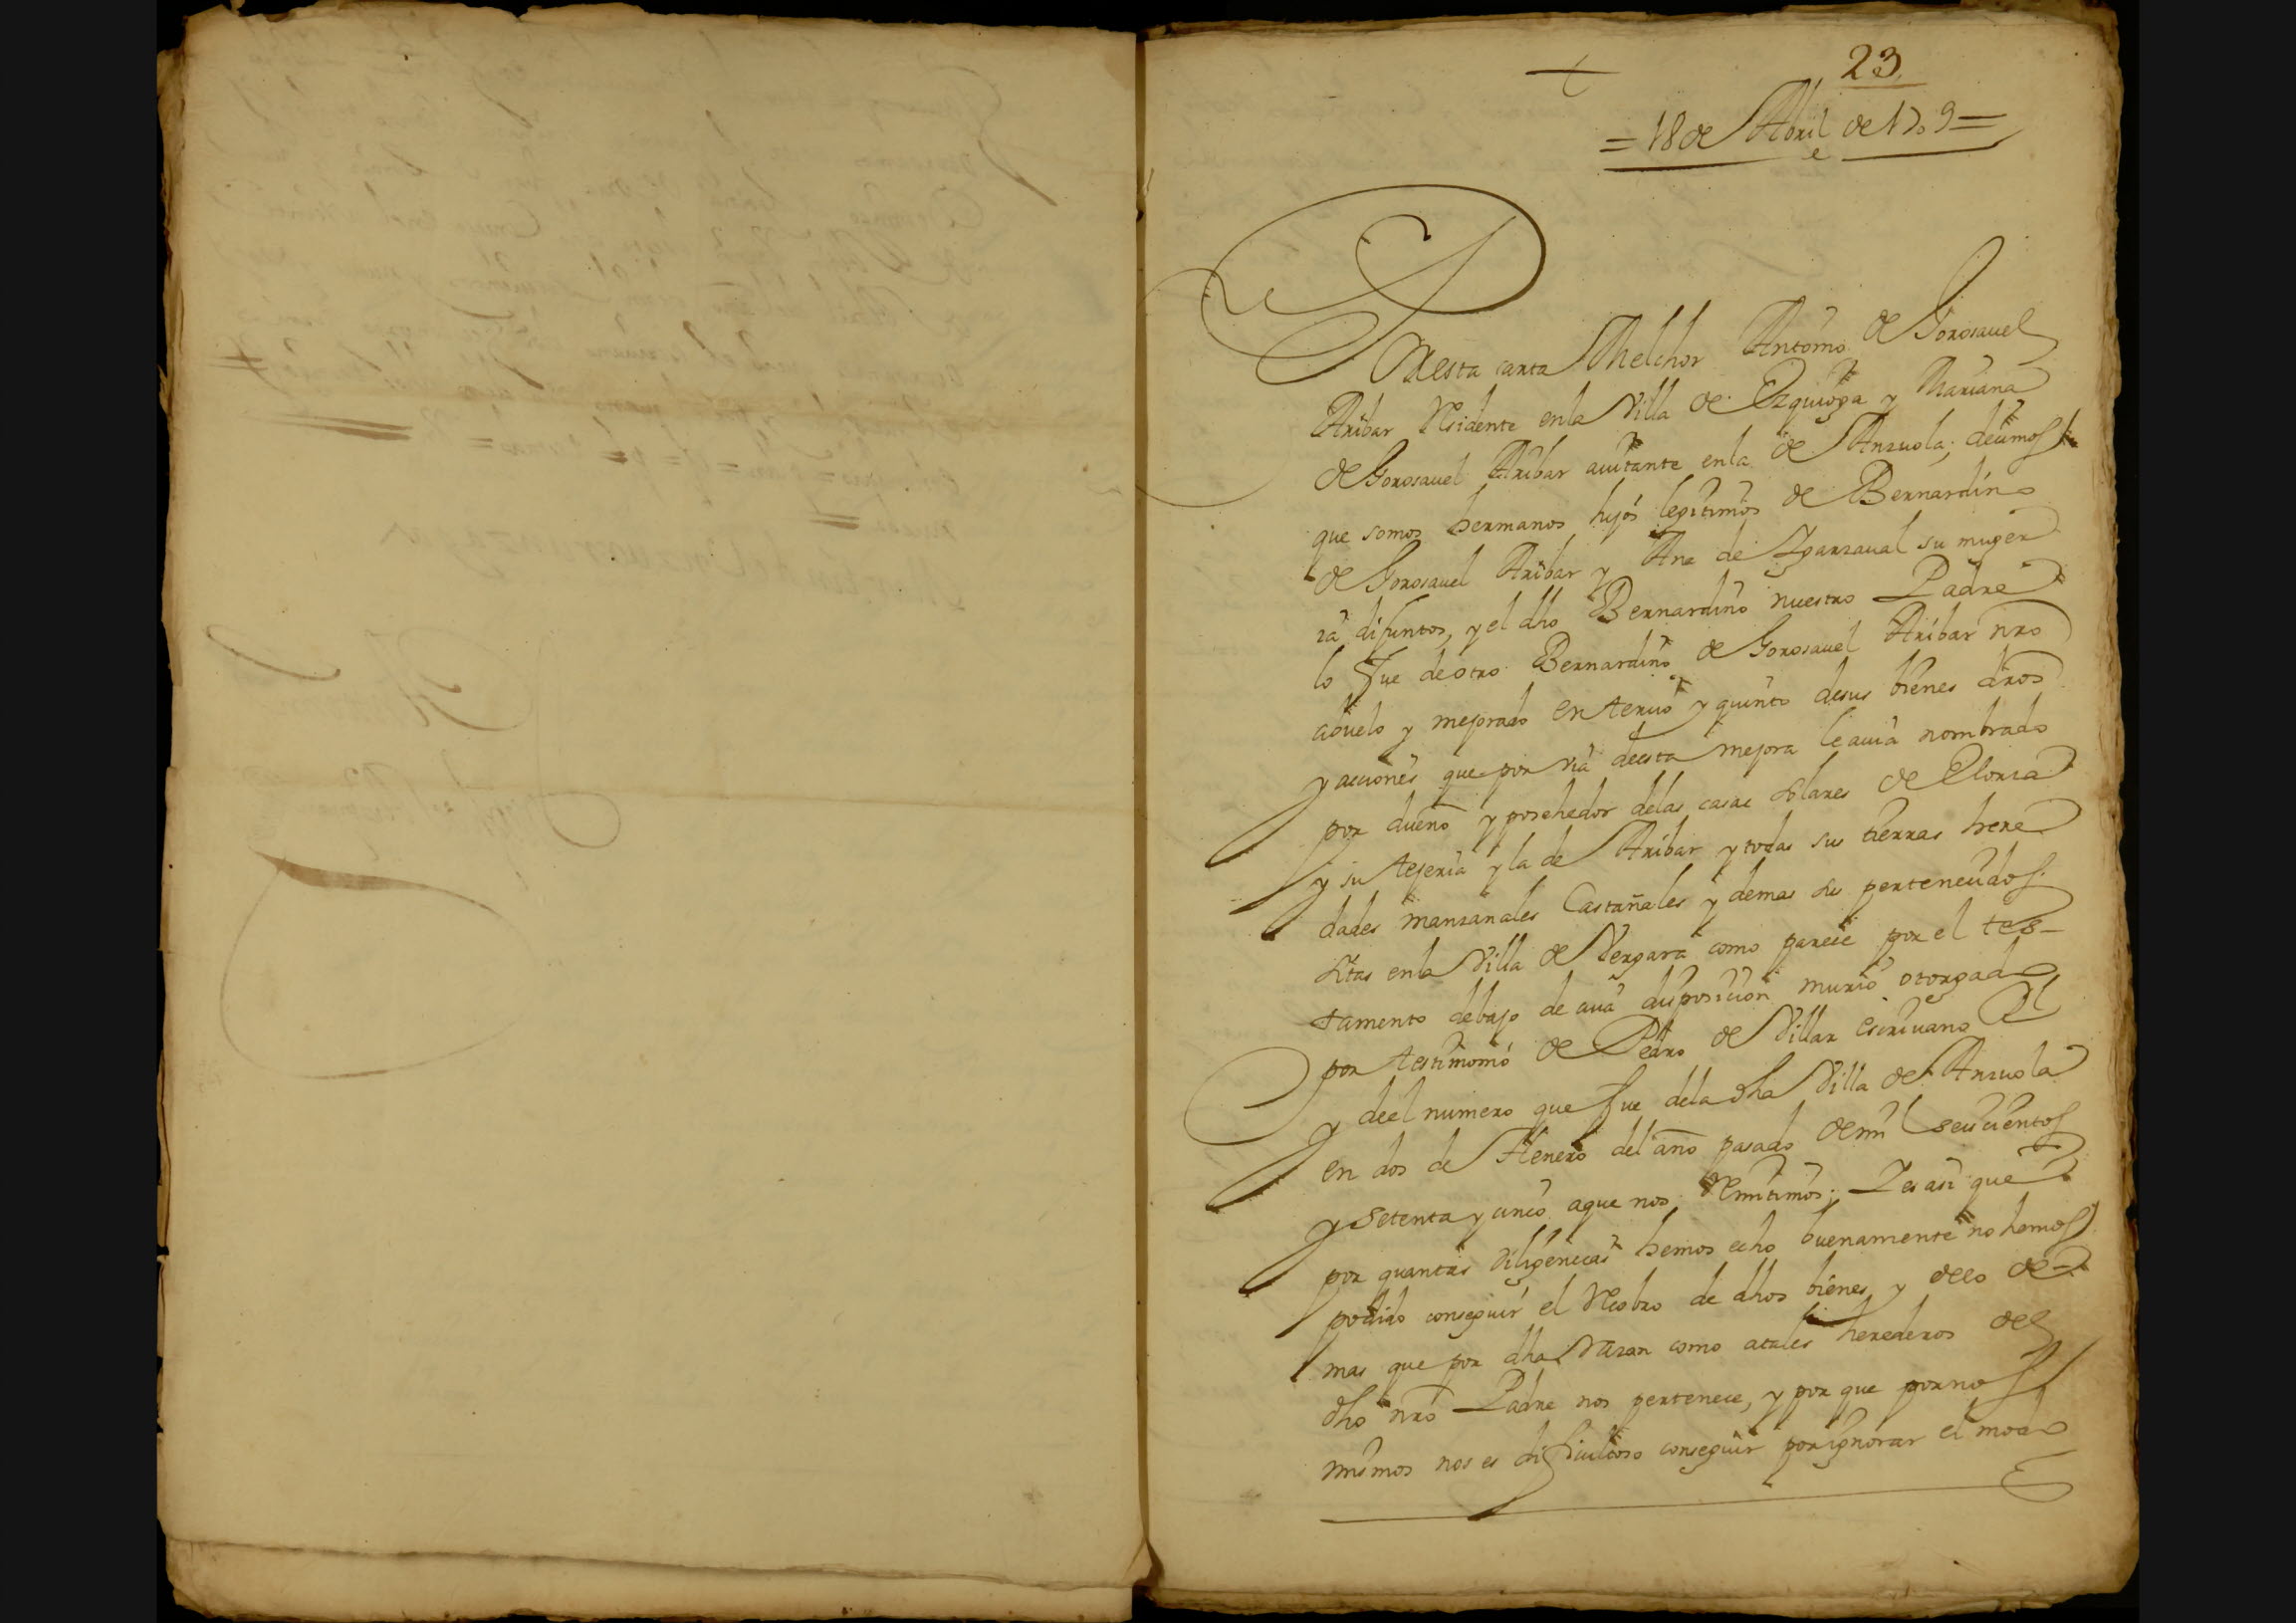 23
= 18 de Abril de 1709 =
Por esta carta Melchor Antonio de Gorosauel
Aribar Residente en la Villa de Ezquioga y Mariana
de Gorosauel Aribar auitante en la de Anzuola; deçimos
que somos hermanos hijos legitimos de Bernardino
de Gorosauel Aribar y Ana de Ygarzaual su muger
ia difuntos, y el dho Bernardino nuestro Padre
lo fue de otro Bernardino de Gorosauel Aribar nro
abuelo y mejorado en terçio y quinto de sus bienes dros
y acciones que por via de esta mejora le auia nombrado
por dueño y posehedor de las casas solares de Elorza
y su tejeria y la de Aribar y todas sus tierras here
dades manzanales Castañales y demas sus perteneçidos
sitas en la Villa de Vergara como pareçe por el tes-
tamento debajo de cuia dispossiçion murio otorgado
por testimonio de Pedro de Villar escriuano Rl
y de el numero que fue de la dha Villa de Anzuola
en dos de Henero del año pasado de mil seisçientos
y setenta y cinco aque nos Remitimos; Y es asi que
por quantas diligençias hemos echo buenamente no hemos
podido conseguir el Recobro de dhos bienes y de lo de-
mas que por dha Razon como atales herederos de el
dho nro Padre nos perteneçe, y por que por nos
mismos nos es dificultoso conseguir por ignorar el modo